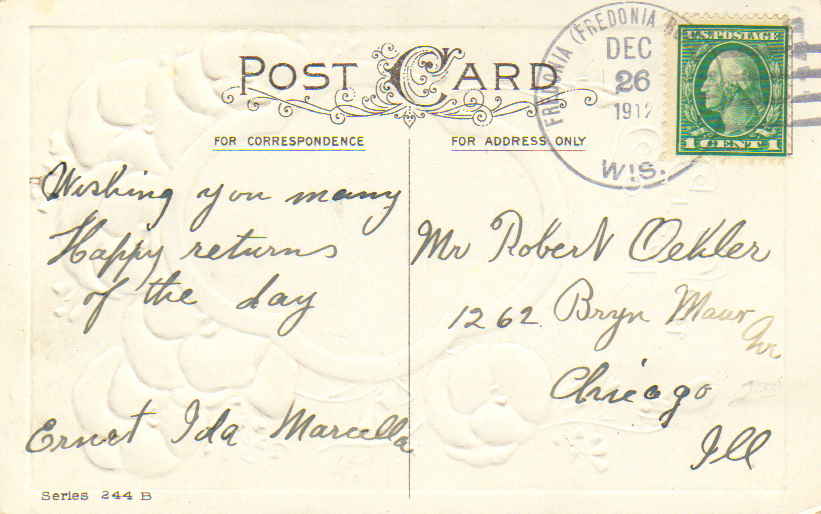 POST CARD
FOR CORRESPONDENCE
FOR ADDRESS ONLY
FREDONIA (FREDONIA
DEC
26
1912
WIS.
U.S. POSTAGE
1 CENT 1
Wishing you many
Happy returns
of the day
Ernst Ida Marcella
Mr Robert Oehler
1262 Bryn Mawr
Av
Chicago
Ill
Series 244 B